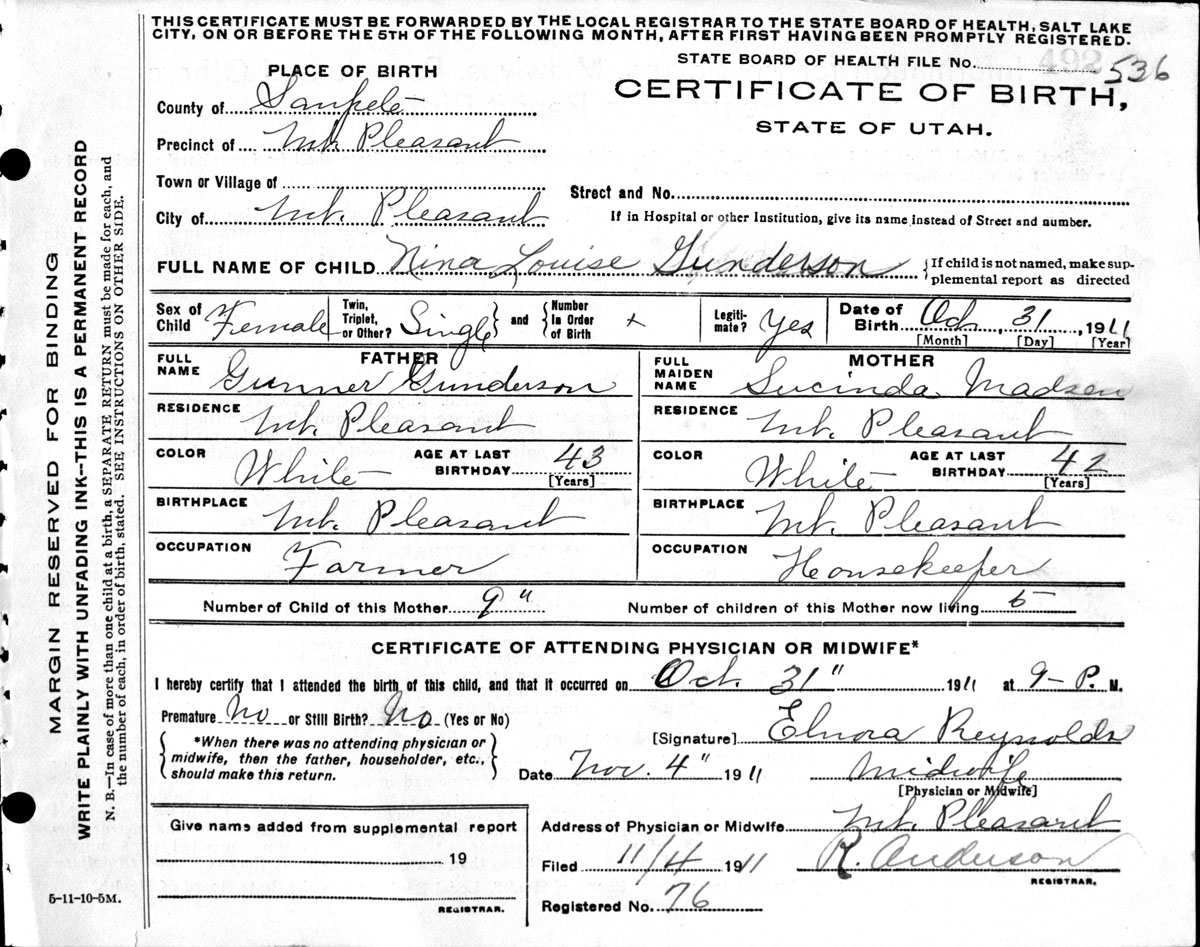 THIS CERTIFICATE MUST BE FORWARDED BY THE LOCAL REGISTRAR TO THE STATE BOARD OF HEALTH, SALT LAKE
CITY, ON OR BEFORE THE 5TH OF THE FOLLOWING MONTH, AFTER FIRST HAVING BEEN PROMPTLY REGISTERED.
STATE BOARD OF HEALTH FILE No. 492 536
PLACE OF BIRTH
CERTIFICATE OF BIRTH,
STATE OF UTAH.
County of Sanpete
Precinct of Mt. Pleasant
Town or Village of
Street and No.
City of Mt. Pleasant
If in Hospital or other Institution, give its name instead of Street and number.
FULL NAME OF CHILD Nina Louise Gunderson {If child is not named, make sup-
plemental report as directed
Sex of Child Female Twin, Triplet, or Other? Single and Number In Order of Birth + Legiti- mate? Yes Date of Birth Oct. 31, 1911
[Month] [Day] [Year]
FATHER
FULL NAME Gunner Gunderson
RESIDENCE Mt. Pleasant
COLOR White AGE AT LAST BIRTHDAY 43
[Years]
BIRTHPLACE Mt. Pleasant
OCCUPATION Farmer
MOTHER
FULL MAIDEN NAME Lucinda Madsen
RESIDENCE Mt. Pleasant
COLOR White AGE AT LAST BIRTHDAY 42
[Years]
BIRTHPLACE Mt. Pleasant
OCCUPATION Housekeeper
Number of Child of this Mother 9" Number of children of this Mother now living 5
CERTIFICATE OF ATTENDING PHYSICIAN OR MIDWIFE*
I hereby certify that I attended the birth of this child, and that it occurred on Oct. 31" 1911 at 9-P. M.
Premature No or Still Birth? No (Yes or No)
*When there was no attending physician or
midwife, then the father, householder, etc.,
should make this return.
[Signature] Elnora Reynolds
Date Nov. 4" 1911 Midwife
[Physician or Midwife]
Give name added from supplemental report
19
REGISTRAR.
Address of Physician or Midwife Mt. Pleasant
Filed 11/4 1911 R. Anderson
REGISTRAR.
Registered No. 76
5-11-10-5M.
MARGIN RESERVED FOR BINDING
WRITE PLAINLY WITH UNFADING INK--THIS IS A PERMANENT RECORD
N. B.--In case of more than one child at a birth, a SEPARATE RETURN must be made for each, and
the number of each, in order of birth, stated. SEE INSTRUCTIONS ON OTHER SIDE.